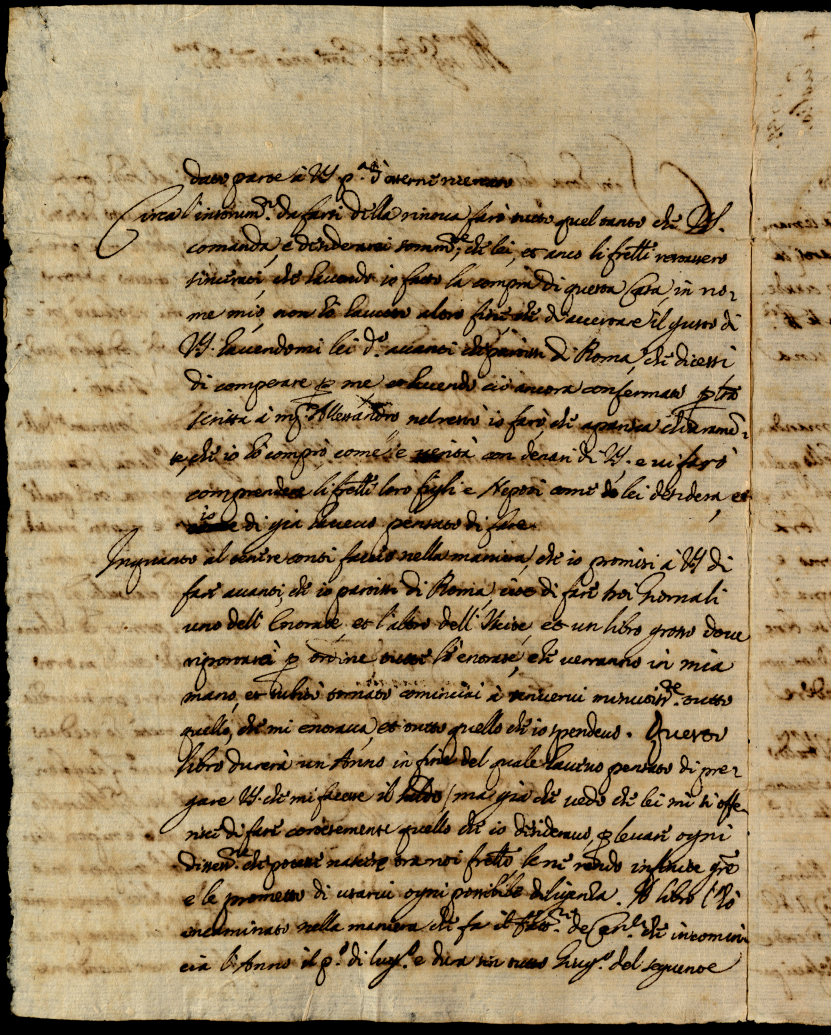 dato parte à VS p.ª d'averne
Circa l'instrum.to da farsi della rinova farò tutto quel tanto che VS.
comanda, e desidererei somm.te, che lei, et anco li fr̃elli restassero
sincerati, che havendo io fatto la compra di questa Casa, in no-
me mio, non hò havuto altro fine che di il gusto di
VS. havendomi lei d.º avanti che partissi di Roma, che dicessi
di comperare p me et havendo ciò ancora confermato p l̃ra
scritta à m.r Alessandro, nel resto io farò, che aparisca chiaramē-
te, che io hò comprò come è verità con denari di VS. e vi farò
comprendere li fr̃elli loro figli e Nepoti come lei desidera, et
io di già havevo pensato di fare.
Inquanto al tenere conti faccio nella maniera, che io promisi à VS di
fare avanti, che io partissi di Roma, cioè di fare doi Giornali
uno dell'Entrate, et l'altro dell'Uscite et un libro grosso dove
riportarei p ordine tutte l'entrate, che verranno in mia
mano, et subito tornato cominciai à scrivervi minutiss.te tutto
quello, che mi entrava, et tutto quello che io spendevo. Questo
libro durerà un Anno in fine del quale havevo pensato di pre-
gare VS. che mi facesse il saldo, ma già che vedo che lei mi si offe-
risce di fare cortesemente quello che io desideravo, p levare ogni
che potesse nascere tra noi fr̃elli le ne rendo infinite gr̃e
e le prometto di usarvi ogni possibile diligenza. Il libro l'hò
incaminato nella maniera che fa il de Can.ci che incomin-
cia l'Anno il p.º di lug.º e dura sin tutto Giug.º del seguente